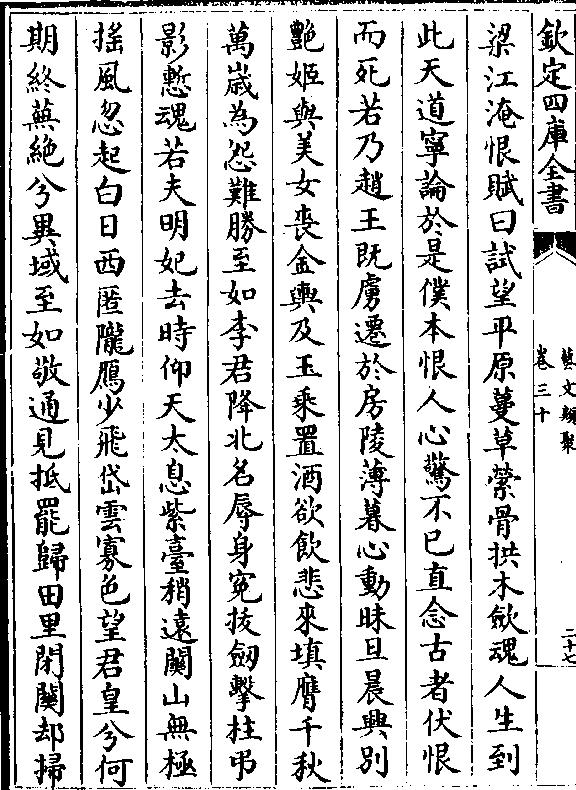 欽定四庫全書
藝文類聚
卷三十
二十七
梁江淹恨賦曰試望平原蔓草縈骨拱木歛魂人生到
此天道寧論於是僕本恨人心驚不已直念古者伏恨
而死若乃趙王既虜遷於房陵薄暮心動昧旦晨興別
艷姬與美女喪金輿及玉乘置酒欲飲悲來填膺千秋
萬歲為怨難勝至如李君降北名辱身寃拔劒擊柱弔
影慙魂若夫明妃去時仰天太息紫臺稍遠關山無極
揺風忽起白日西匿隴鴈少飛岱雲寡色望君皇兮何
期終蕪絶兮異域至如敬通見抵罷歸田里閉關却掃